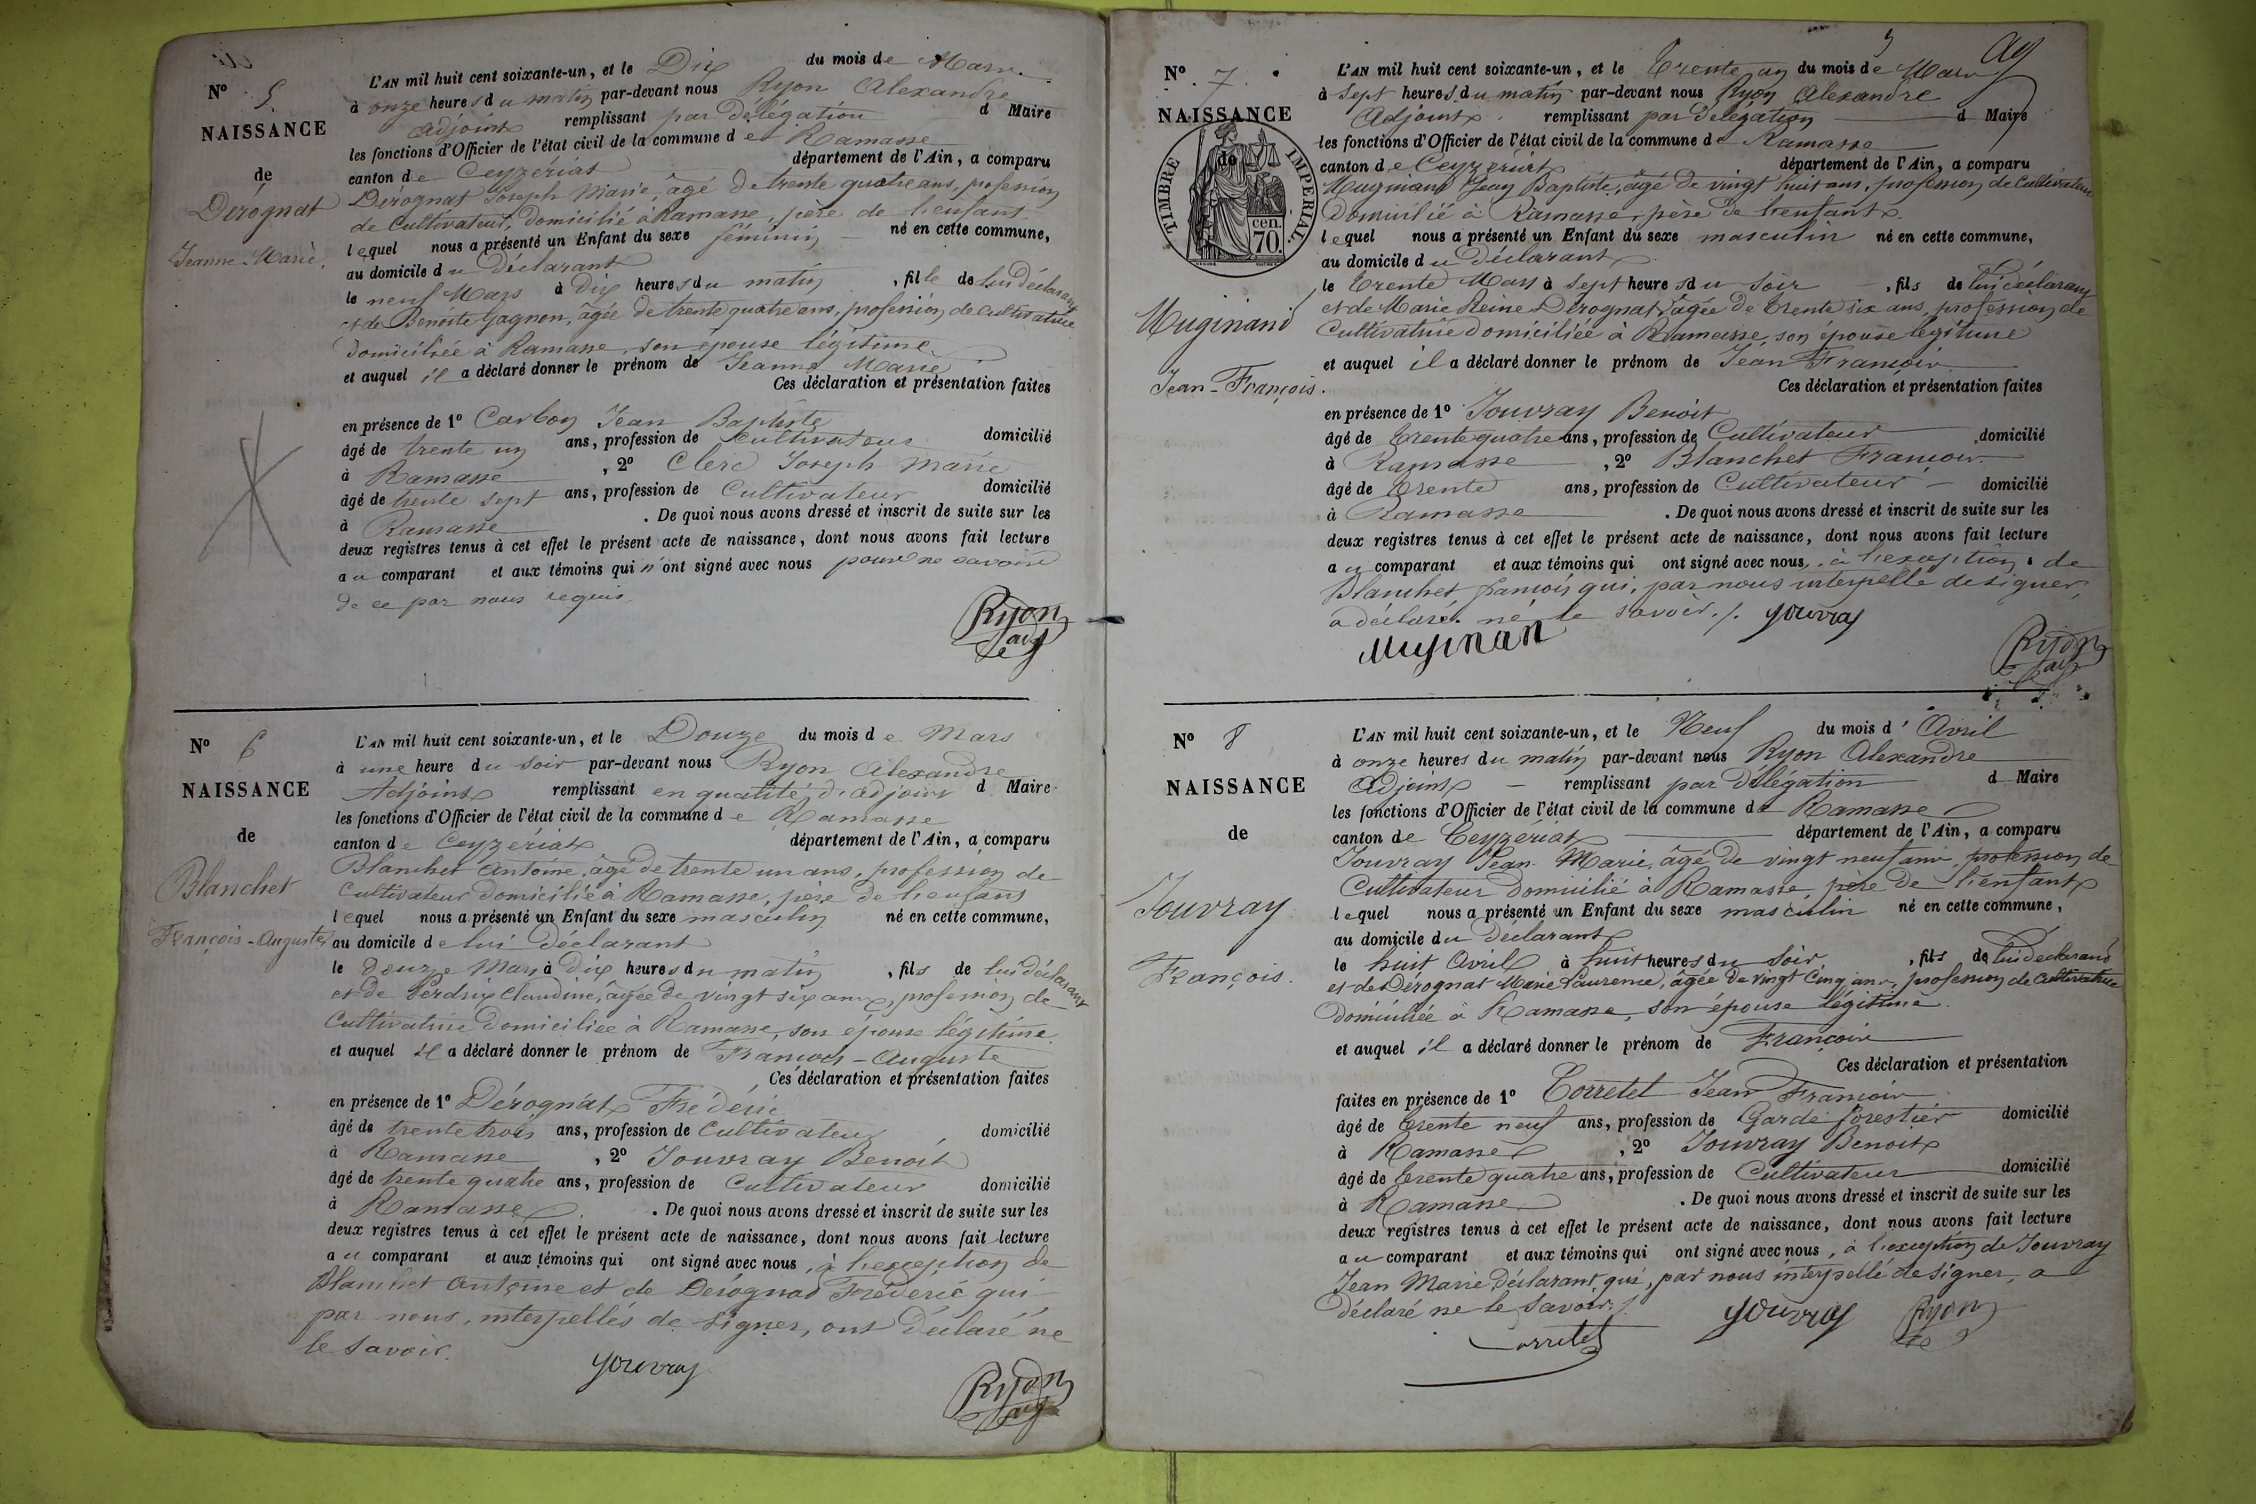 N° 5
NAISSANCE
de
Dérognat
Jeanne-Marie.
L'AN mil huit cent soixante-un, et le Dix du mois de Mars
à onze heures du matin par-devant nous Ryon Alexandre
Adjoint remplissant par délégation d Maire
les fonctions d'Officier de l'état civil de la commune de Ramasse
canton de Ceyzériat département de l'Ain, a comparu
Dérognat Joseph Marie, âgé de trente quatre ans, profession
de Cultivateur, domicilié à Ramasse, père de l'enfant
lequel nous a présenté un Enfant du sexe féminin né en cette commune,
au domicile du déclarant
le neuf Mars à dix heures du matin, fille de lui déclarant
et de Benoite Gagnon, âgée de trente quatre ans, profession de cultivatrice
domiciliée à Ramasse, son épouse légitime
et auquel il a déclaré donner le prénom de Jeanne Marie
Ces déclaration et présentation faites
en présence de 1° Carbon Jean Baptiste
âgé de trente un ans, profession de Cultivateur domicilié
à Ramasse, 2° Clerc Joseph Marie
âgé de trente sept ans, profession de Cultivateur domicilié
à Ramasse. De quoi nous avons dressé et inscrit de suite sur les
deux registres tenus à cet effet le présent acte de naissance, dont nous avons fait lecture
au comparant et aux témoins qui n'ont signé avec nous pour ne savoir
de ce par nous requis
Ryon
adj
N° 6
NAISSANCE
de
Blanchet
François-Auguste
L'AN mil huit cent soixante-un, et le Douze du mois de Mars
à une heure du soir par-devant nous Ryon Alexandre
Adjoint remplissant en qualité d'adjoint d Maire
les fonctions d'Officier de l'état civil de la commune de Ramasse
canton de Ceyzériat département de l'Ain, a comparu
Blanchet Antoine, âgé de trente un ans, profession de
Cultivateur domicilié à Ramasse, père de l'enfant
lequel nous a présenté un Enfant du sexe masculin né en cette commune,
au domicile de lui déclarant
le douze Mars à dix heures du matin, fils de lui déclarant
et de Perdrix Claudine, âgée de vingt six ans, profession de
Cultivatrice domiciliée à Ramasse, son épouse légitime
et auquel il a déclaré donner le prénom de François-Auguste
Ces déclaration et présentation faites
en présence de 1° Dérognat Frédéric
âgé de trente trois ans, profession de Cultivateur domicilié
à Ramasse, 2° Jouvray Benoit
âgé de trente quatre ans, profession de Cultivateur domicilié
à Ramasse. De quoi nous avons dressé et inscrit de suite sur les
deux registres tenus à cet effet le présent acte de naissance, dont nous avons fait lecture
au comparant et aux témoins qui ont signé avec nous, à l'exception de
Blanchet Antoine et de Dérognat Frédéric qui
par nous, interpellés de signer, ont déclaré ne
le savoir.
Jouvray
Ryon
adj
5
N° 7
NAISSANCE
de
TIMBRE IMPERIAL.
cen.
70.
Muginand
Jean-François.
L'AN mil huit cent soixante-un, et le trente un du mois de Mars
à sept heures du matin par-devant nous Ryon Alexandre
Adjoint remplissant par délégation d Maire
les fonctions d'Officier de l'état civil de la commune de Ramasse
canton de Ceyzériat département de l'Ain, a comparu
Muginand Jean Baptiste, âgé de vingt huit ans, profession de Cultivateur
domicilié à Ramasse, père de l'enfant
lequel nous a présenté un Enfant du sexe masculin né en cette commune,
au domicile du déclarant
le trente Mars à sept heures du soir, fils de lui déclarant
et de Marie Reine Dérognat, âgée de trente six ans, profession de
Cultivatrice domiciliée à Ramasse, son épouse légitime
et auquel il a déclaré donner le prénom de Jean François
Ces déclaration et présentation faites
en présence de 1° Jouvray Benoit
âgé de trente quatre ans, profession de Cultivateur domicilié
à Ramasse, 2° Blanchet François
âgé de trente ans, profession de Cultivateur domicilié
à Ramasse. De quoi nous avons dressé et inscrit de suite sur les
deux registres tenus à cet effet le présent acte de naissance, dont nous avons fait lecture
au comparant et aux témoins qui ont signé avec nous, à l'exception de
Blanchet françois qui, par nous interpellé de signer,
a déclaré ne le savoir./. Jouvray
Muginan
Ryon
adj
N° 8
NAISSANCE
de
Jouvray
François.
L'AN mil huit cent soixante-un, et le Neuf du mois d'Avril
à onze heures du matin par-devant nous Ryon Alexandre
Adjoint remplissant par délégation d Maire
les fonctions d'Officier de l'état civil de la commune de Ramasse
canton de Ceyzériat département de l'Ain, a comparu
Jouvray Jean Marie, âgé de vingt neuf ans, profession de
Cultivateur domicilié à Ramasse, père de l'enfant
lequel nous a présenté un Enfant du sexe masculin né en cette commune,
au domicile du déclarant
le huit Avril à huit heures du soir, fils de lui déclarant
et de Dérognat Marie Laurence, âgée de vingt cinq ans, profession de cultivatrice
domiciliée à Ramasse, son épouse légitime.
et auquel il a déclaré donner le prénom de François
Ces déclaration et présentation
faites en présence de 1° Corretel Jean François
âgé de trente neuf ans, profession de Garde forestier domicilié
à Ramasse, 2° Jouvray Benoit
âgé de trente quatre ans, profession de Cultivateur domicilié
à Ramasse. De quoi nous avons dressé et inscrit de suite sur les
deux registres tenus à cet effet le présent acte de naissance, dont nous avons fait lecture
au comparant et aux témoins qui ont signé avec nous, à l'exception de Jouvray
Jean Marie déclarant qui, par nous interpellé de signer, a
déclaré ne le savoir./. Jouvray Ryon
Corretel